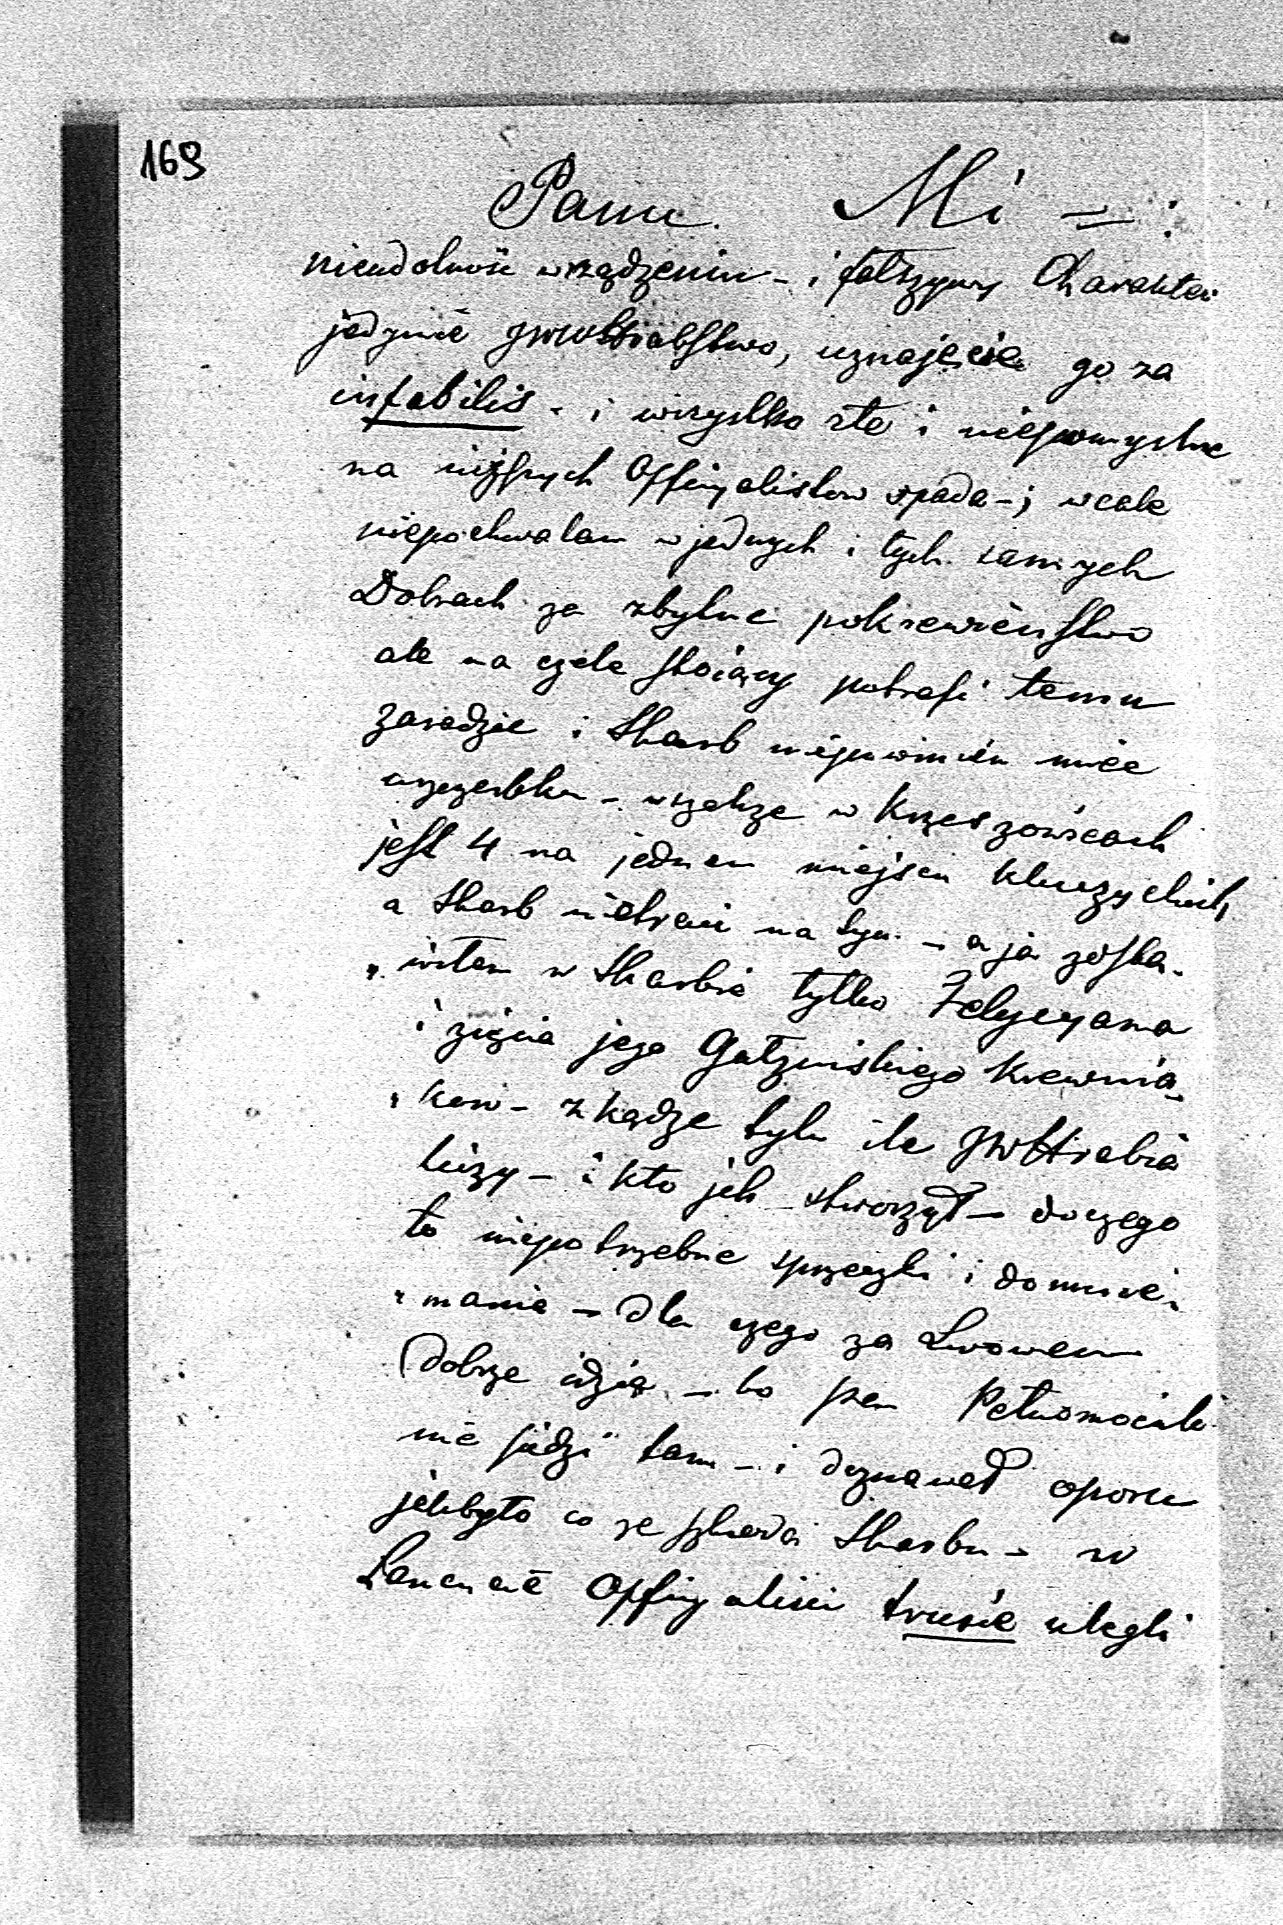 169
Panu Mi — :
nieudolność w rządzeniu – i fałszywy Charakter
jedynie JWWHrabstwo, uznajecie go za
infabilis – i wszystko złe i niepomyślne
na niższych Officyalistow spada – ; wcale
niepochwalam w jednych i tych samych
Dobrach za zbytne pokrewieństwo
ale na czele stoiący potrafi temu
zaradzić i Skarb niepowinien mieć
uszczerbku – wszakże w Krzeszowicach
jest 4 na jednem miejscu Kluczyckich,
a Skarb nietraci na tym – a ja zosta-
„wiłem w Skarbie tylko Felycyana
i zięcia jego Gałzińskiego Krewnia-
„kow – zkądze tylu ile JWHrabia
liczy – i kto jch stworzył – doczego
to niepotrzebne sprzeczki i domnie-
„manie – dla czego za Lwowem
Dobrze idzie – bo pan Pełnomocnik
nie siedzi tam – i doznawał oporu
jeżliby to co ze szkodą Skarbu – w
Łancucie Officyaliści trusie ulegli